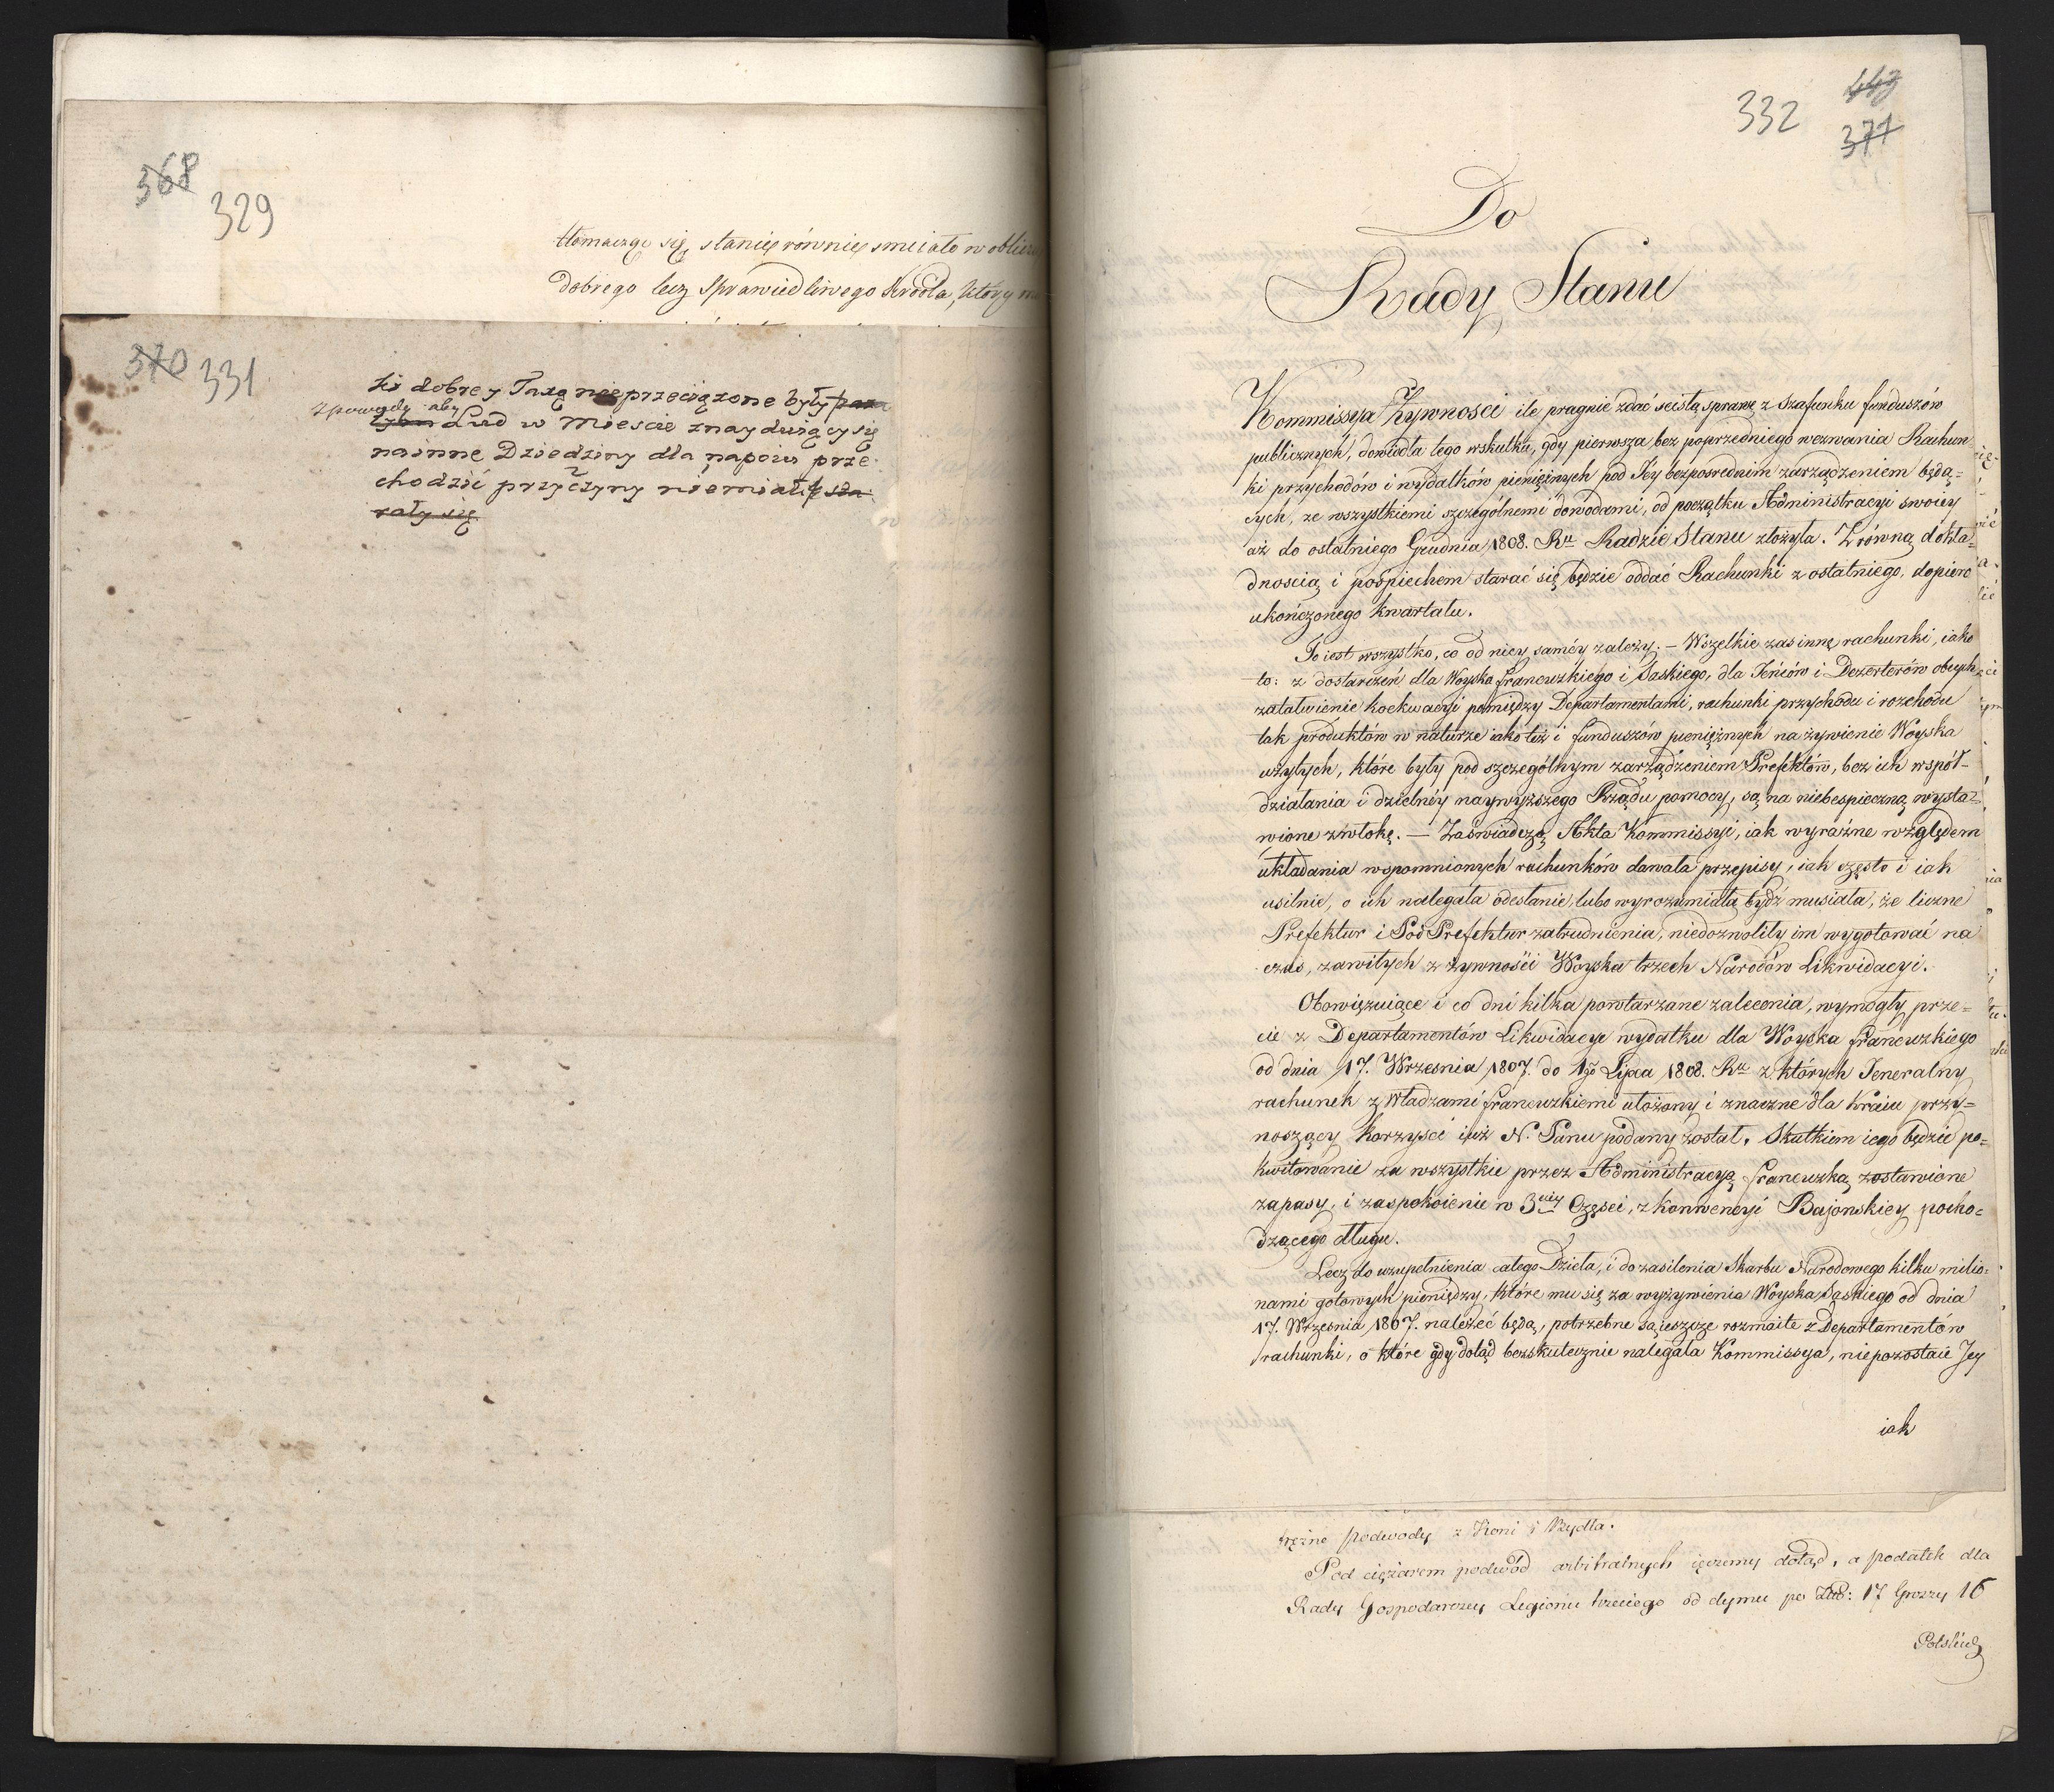 368
329
tłomacząc się, stanię równię smiało w oblicz
dobrego lecz Sprawiedliwego Króla, który
370 331
ki dobrey Taxą nieprzeciążone były
z powodu aby
Lud w Miescie znayduiący się
na inne Dziedziny dla napoiu prze
chodzić przyczyny niemiał, sta
rały się
332
371
Do
Rady Stanu
Kommissya Żywnosci ile pragnie zdać scisłą sprawę z szafunku funduszów
publicznych, dowiodła tego wskutku, gdy pierwsza bez poprzedniego wezwania Rachun
ki przychodów i wydatków pieniężnych pod Jey bezposrednim zarządzeniem będą=
cych, ze wszystkiemi szczególnemi dowodami, od początku Administracyi swoiey
aż do ostatniego Grudnia 1808. Ru Radzie Stanu złożyła. Z równą dokła=
dnoscią i pospiechem starać się będzie oddać Rachunki z ostatniego, dopiero
ukończonego kwartału.
To iest wszystko, co od niey saméy zależy. – Wszelkie zas innę rachunki, iako
to: z dostarczeń dla Woyska francuzkiego i Saskiego, dla Jeńców i Dezerterów obcych
załatwienie koekwacyi pomiędzy Departamentami, rachunki przychodu i rozchodu
tak produktów w naturze iako też i funduszów pieniężnych na żywienie Woyska
użytych, które były pod szczególnym zarządzeniem Prefektów, bez ich współ–
działania i dzielnéy naywyższego Rządu pomocy, są na niebespieczną wysta=
wione zwłokę. — Zaświadczą Akta Kommissyi, iak wyraźne względem
układania wspomnionych rachunków dawała przepisy, iak często i iak
usilnie, o ich nalegała odesłanie, lubo wyrozumiałą bydź musiała, że liczne
Prefektur i PodPrefektur zatrudnienia, niedozwoliły im wygotować na
czas, zawiłych z żywności Woyska trzech Narodów Likwidacyi.
Obowięzuiące i co dni kilka powtarzane zalecenia, wymogły prze=
cie z Departamentów Likwidacye wydatku dla Woyska francuzkiego
od dnia 17. Wrzesnia 1807. do 1go Lipca 1808. Ru z których Jeneralny
rachunek z Władzami francuzkiemi ułożony i znaczne dla Kraiu przy=
noszący korzysci iuż N. Panu podany został. Skutkiem iego będzie po=
kwitowanie za wszystkie przez Administracyą francuzką zostawione
zapasy, i zaspokoienie w 3ciey Częsci, z konwencyi Bajonskiey pocho=
dzącego długu.
Lecz do uzupełnienia całego Dzieła, i do zasilenia Skarbu Narodowego kilku milio=
nami gotowych pieniędzy, które mu się za wyżywienia Woyska Saskiego od dnia
17. Wrzesnia 1807. należeć będą, potrzebne są ieszcze rozmaite z Departamentów
rachunki, o które gdy dotąd bezskutecznie nalegała Kommissya, niepozostaie Jey
iak
podwody z Koni i Bydła.
Pod ciężarem podwód arbitralnych ięczemy dotąd, a podatek dla
Rady Gospodarczey Legionu trzeciego od dymu po Złł: 17 Groszy 16